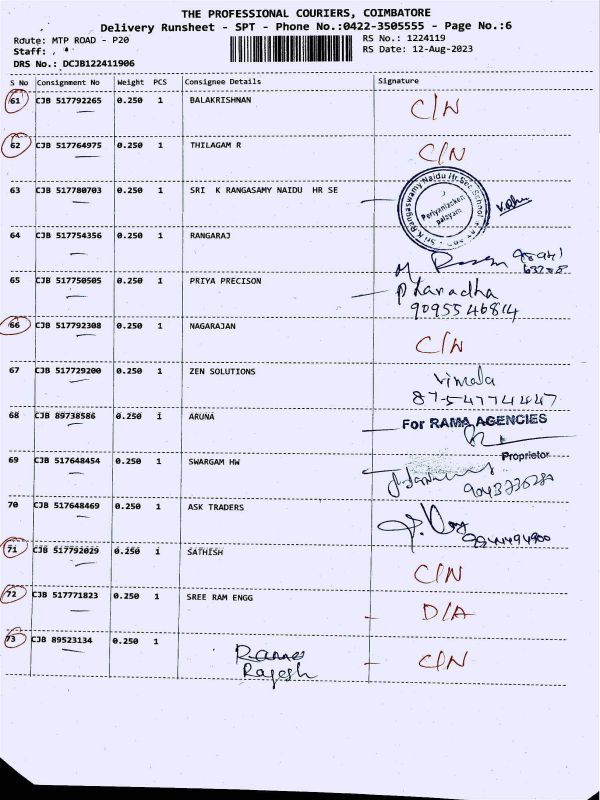 THE PROFESSIONAL COURIERS, COIMBATORE
Delivery Runsheet - SPT - Phone No.:0422-3505555 - Page No.:6
Route: MTP ROAD - P20
RS No.: 1224119
Staff:
RS Date: 12-Aug-2023
DRS No.: DCJB122411906
S No Consignment No Weight PCS Consignee Details Signature
61 CJB 517792265 0.250 1 BALAKRISHNAN C/N
62 CJB 517764975 0.250 1 THILAGAM R C/N
63 CJB 517780703 0.250 1 SRI K RANGASAMY NAIDU HR SE
Periyanaicken palayam
64 CJB 517754356 0.250 1 RANGARAJ
65 CJB 517750505 0.250 1 PRIYA PRECISON
9095546814
66 CJB 517792308 0.250 1 NAGARAJAN C/N
67 CJB 517729200 0.250 1 ZEN SOLUTIONS Vimala
87-54774447
68 CJB 89738586 0.250 1 ARUNA For RAMA AGENCIES
Proprietor
69 CJB 517648454 0.250 1 SWARGAM HW
70 CJB 517648469 0.250 1 ASK TRADERS
71 CJB 517792029 0.250 1 SATHISH C/N
72 CJB 517771823 0.250 1 SREE RAM ENGG D/A
73 CJB 89523134 0.250 1 C/N
Rajesh